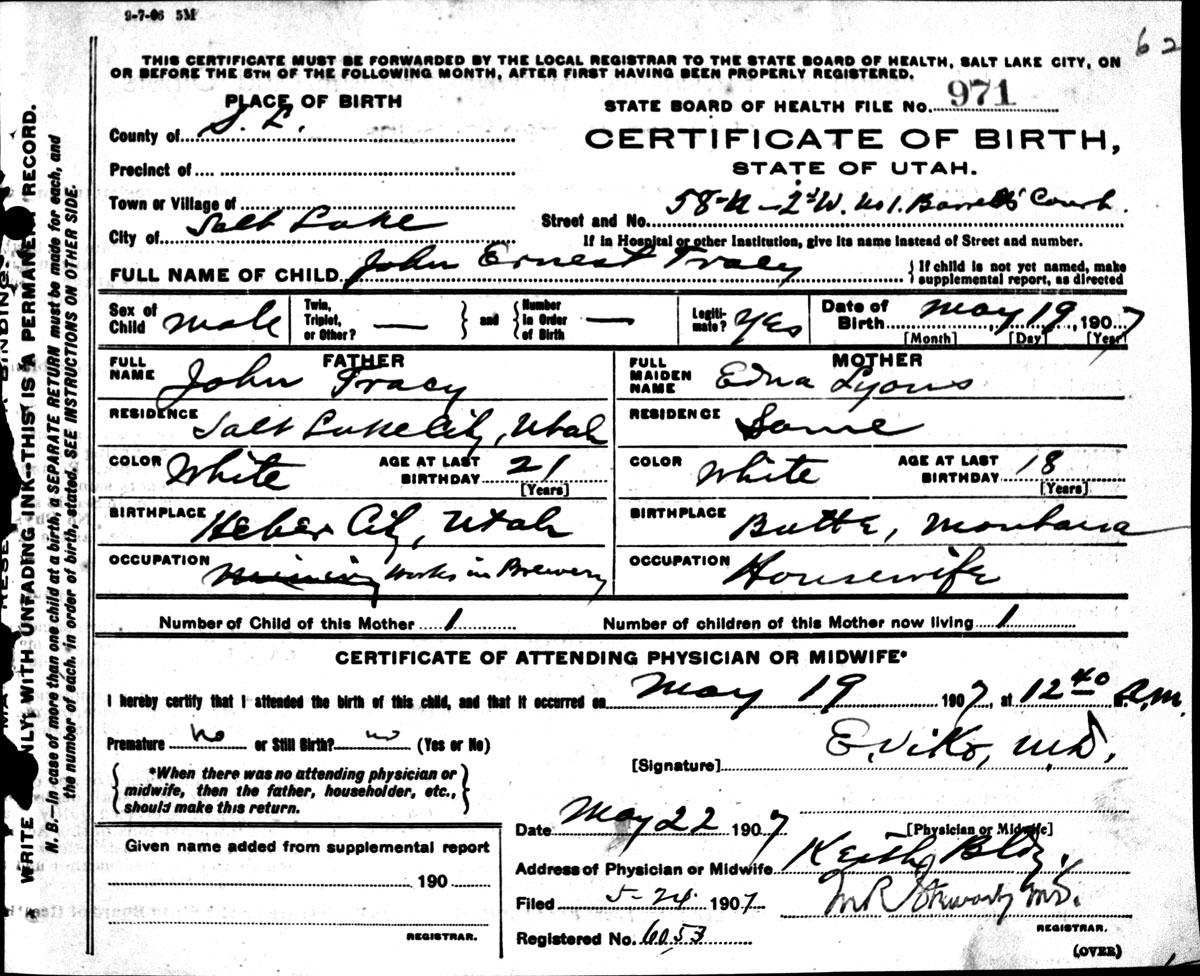 9-7-06 5M
62
THIS CERTIFICATE MUST BE FORWARDED BY THE LOCAL REGISTRAR TO THE STATE BOARD OF HEALTH, SALT LAKE CITY, ON
OR BEFORE THE 5TH OF THE FOLLOWING MONTH, AFTER FIRST HAVING BEEN PROPERLY REGISTERED.
PLACE OF BIRTH
STATE BOARD OF HEALTH FILE NO. 971
County of S. L.
CERTIFICATE OF BIRTH,
STATE OF UTAH.
Precinct of
Town or Village of
Street and No. 58-N-2d W. No 1. Barretts Court.
City of Salt Lake
If in Hospital or other Institution, give its name instead of Street and number.
FULL NAME OF CHILD John Ernest Tracy
If child is not yet named, make
supplemental report, as directed
Sex of Child Male
Twin, Triplet, or Other? —
and Number in Order of Birth —
Legiti-mate? Yes
Date of Birth May 19, 1907
[Month] [Day] [Year]
FATHER
FULL NAME John Tracy
MOTHER
FULL MAIDEN NAME Edna Lyons
RESIDENCE Salt Lake City, Utah
RESIDENCE Same
COLOR White
AGE AT LAST BIRTHDAY 21
[Years]
COLOR White
AGE AT LAST BIRTHDAY 18
[Years]
BIRTHPLACE Heber City, Utah
BIRTHPLACE Butte, Montana
OCCUPATION Mining Works in Brewery
OCCUPATION Housewife
Number of Child of this Mother 1
Number of children of this Mother now living 1
CERTIFICATE OF ATTENDING PHYSICIAN OR MIDWIFE*
I hereby certify that I attended the birth of this child, and that it occurred on May 19 1907, at 12 40 A.M.
Premature No or Still Birth? no (Yes or No)
[Signature] E. Viko, M.D.
*When there was no attending physician or
midwife, then the father, householder, etc.,
should make this return.
Date May 22 1907
[Physician or Midwife]
Given name added from supplemental report
Address of Physician or Midwife Keith Bldg.
190
Filed 5-24 1907
M.D.
REGISTRAR.
REGISTRAR.
Registered No. 6053
(OVER)
WRITE ONLY WITH UNFADING INK—THIS IS A PERMANENT RECORD.
N. B.—In case of more than one child at a birth, a SEPARATE RETURN must be made for each, and
the number of each, in order of birth, stated. SEE INSTRUCTIONS ON OTHER SIDE.